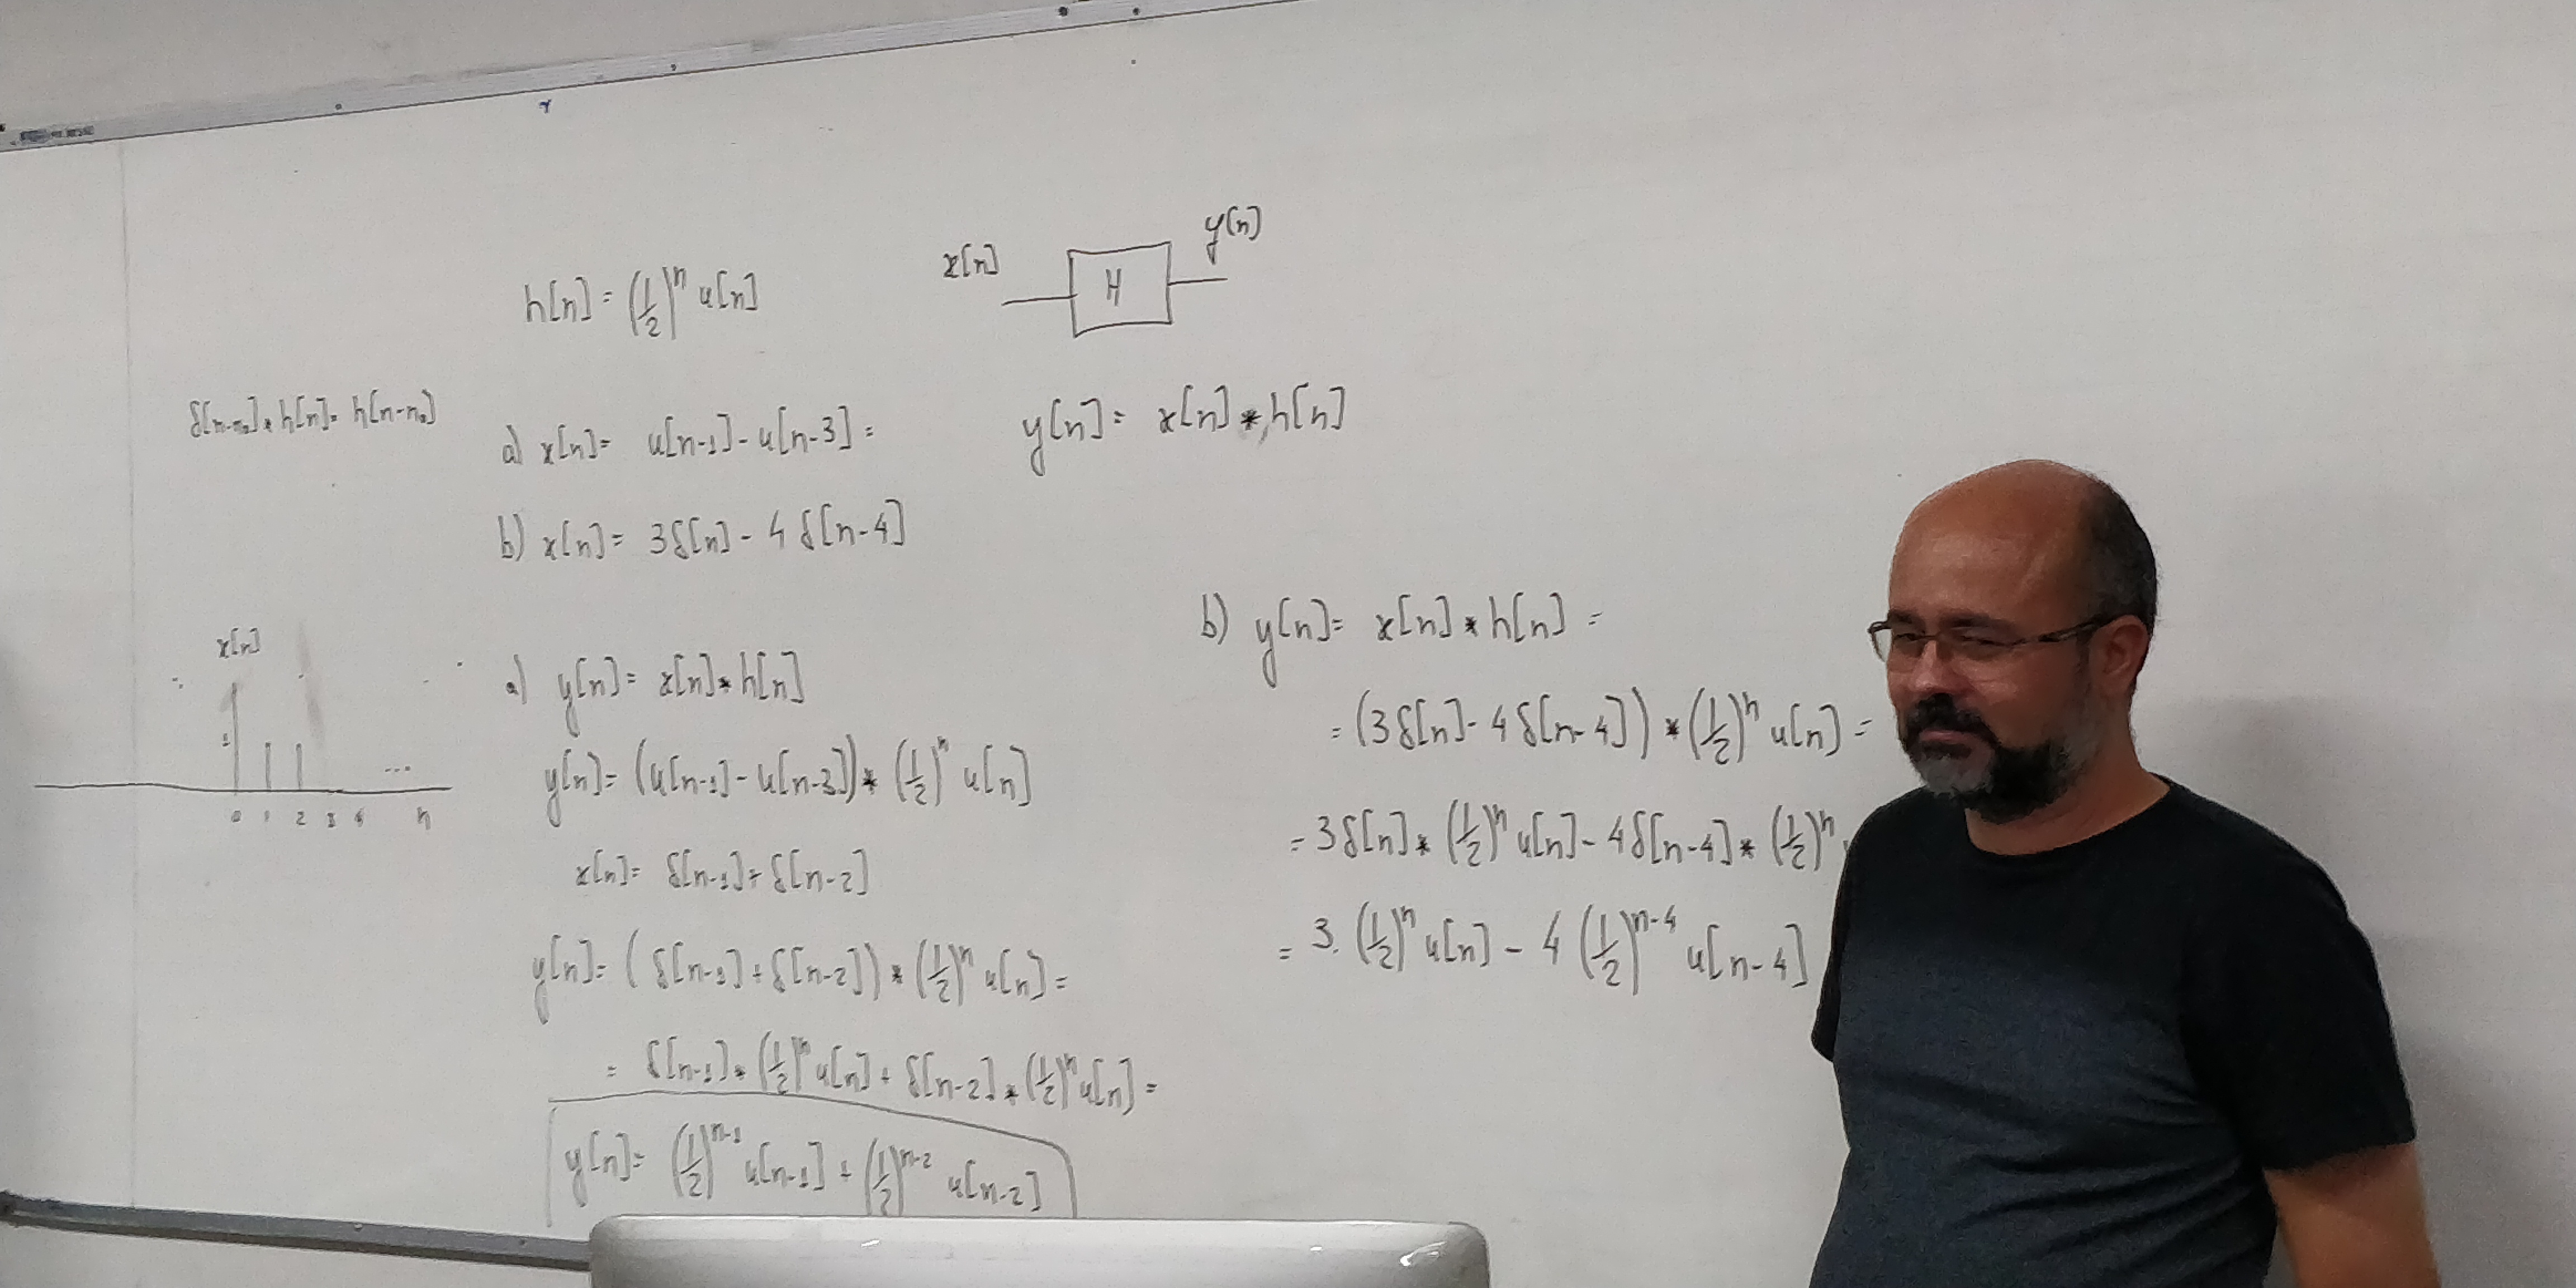 h[n] = (1/2)^n u[n]
x[n] H y[n]
δ[n-n₀] * h[n] = h[n-n₀]
a) x[n] = u[n-1] - u[n-3] =
y[n] = x[n] * h[n]
b) x[n] = 3δ[n] - 4δ[n-4]
x[n]
0 1 2 3 4 n
...
a) y[n] = x[n] * h[n]
y[n] = (u[n-1] - u[n-3]) * (1/2)^n u[n]
x[n] = δ[n-1] + δ[n-2]
y[n] = (δ[n-1] + δ[n-2]) * (1/2)^n u[n] =
= δ[n-1] * (1/2)^n u[n] + δ[n-2] * (1/2)^n u[n] =
y[n] = (1/2)^{n-1} u[n-1] + (1/2)^{n-2} u[n-2]
b) y[n] = x[n] * h[n] =
= (3δ[n] - 4δ[n-4]) * (1/2)^n u[n] =
= 3δ[n] * (1/2)^n u[n] - 4δ[n-4] * (1/2)^n
= 3. (1/2)^n u[n] - 4 (1/2)^{n-4} u[n-4]